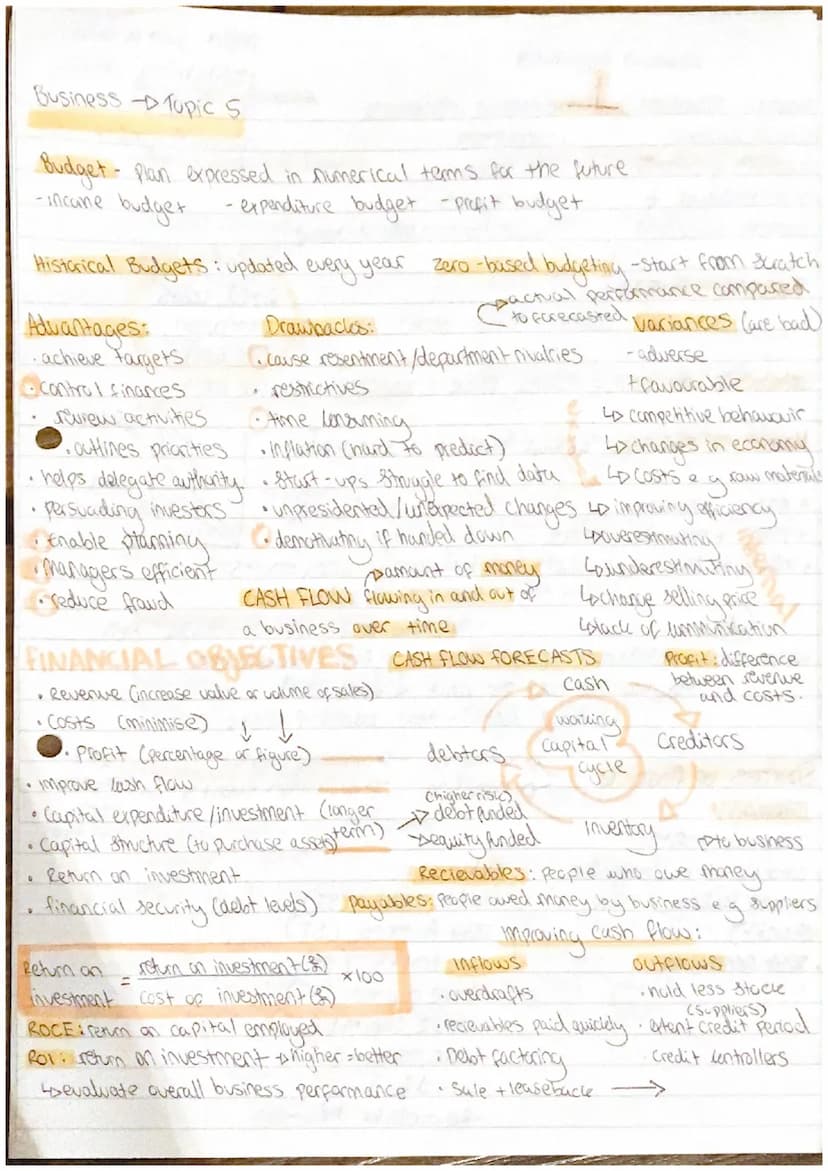 Business → Topic 5
Budget - plan expressed in numerical terms for the future
- income budget - expenditure budget - profit budget
Historical Budgets : updated every year
Zero-based budgeting - start from scratch
Advantages:
· achieve targets
· control finances
· review activities
· outlines priorities
· helps delegate authority
· persuading investors
· enable planning
· managers efficient
· reduce fraud
Drawbacks:
· cause resentment/department rivalries
· restrictives
· time consuming
· inflation (hard to predict)
· start-ups struggle to find data
· unpresidented/unexpected changes
· demotivating if handed down
actual performance compared
to forecasted
variances (are bad)
- adverse
+ favourable
↳ competitive behavouir
↳ changes in economy
↳ costs e.g raw materials
↳ improving efficiency
↳ overestimating
↳ underestimating
↳ change selling price
↳ lack of communication
internal
CASH FLOW → amount of money
flowing in and out of
a business over time
FINANCIAL OBJECTIVES
· Revenue (increase value or volume of sales)
· Costs (minimise) ↓ ↓
· Profit (percentage or figure)
· improve cash flow
· Capital expenditure/investment (longer
term)
· Capital structure (to purchase assets)
(higher risk)
→ debt funded
→ equity funded
· Return on investment
· financial security (debt levels)
CASH FLOW FORECASTS
cash
debtors
working
capital
cycle
Creditors
inventory
Profit: difference
between revenue
and costs.
→ to business
Recievables: people who owe money
Payables: people owed money by business e.g suppliers
Return on
investment
=
return on investment (£)
cost of investment (£)
×100
ROCE: return on capital employed
ROI: return on investment → higher = better
↳ evaluate overall business performance
improving cash flow:
INFLOWS
· overdrafts
· recievables paid quickly
· Debt factoring
· Sale + leaseback →
OUTFLOWS
· hold less stock
(suppliers)
· extent credit period
Credit controllers